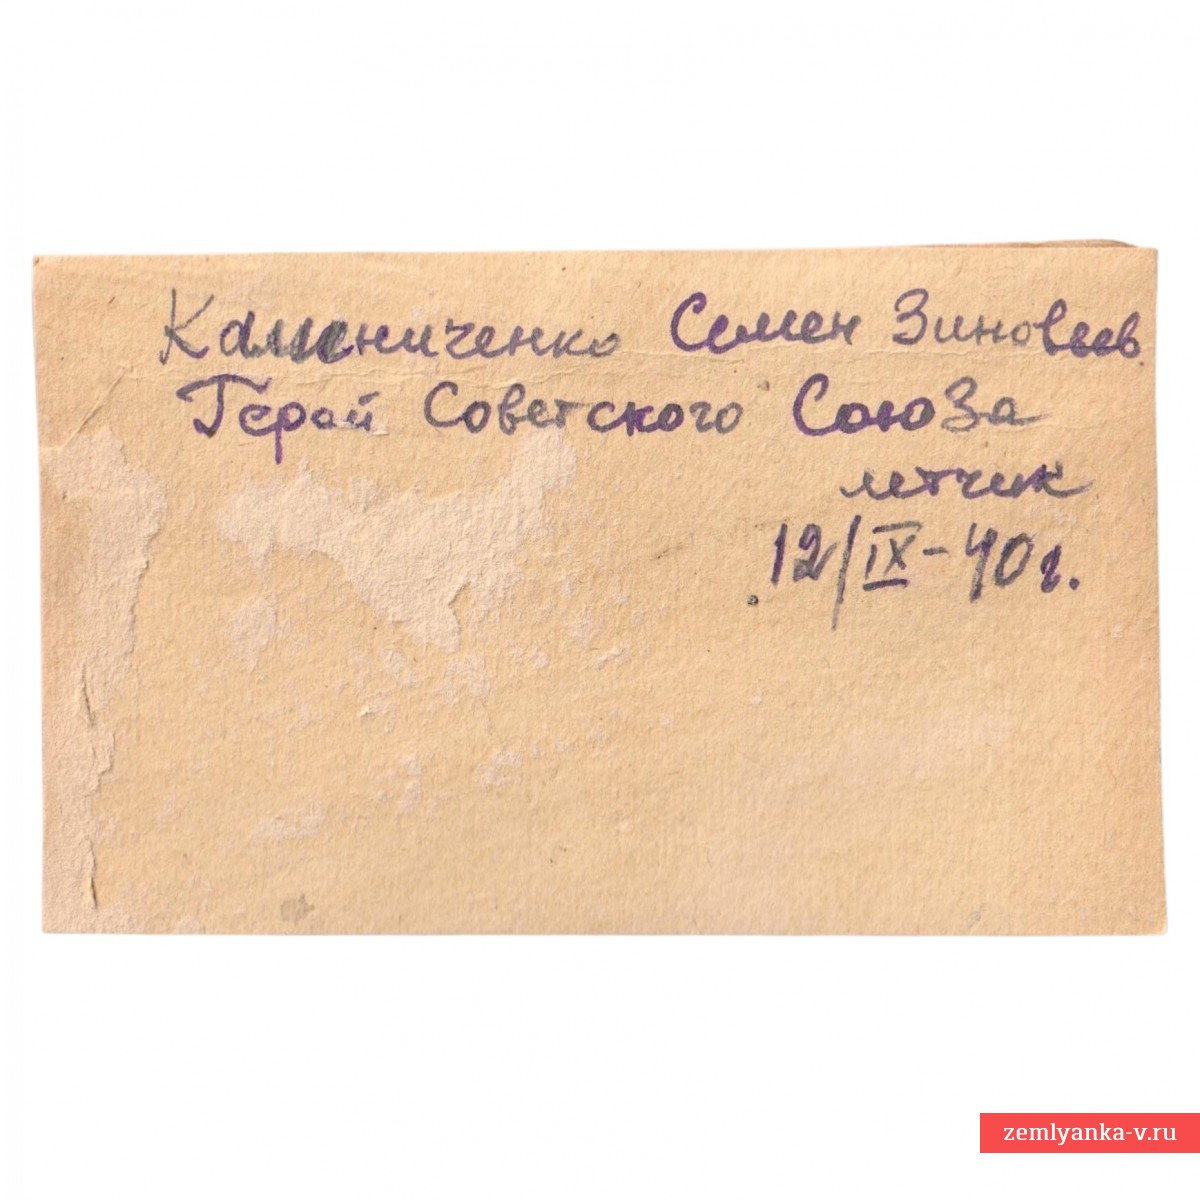 Каменниченко Семен Зиновьев
Герой Советского Союза
летчик
12/IX-40г.
zemlyanka-v.ru